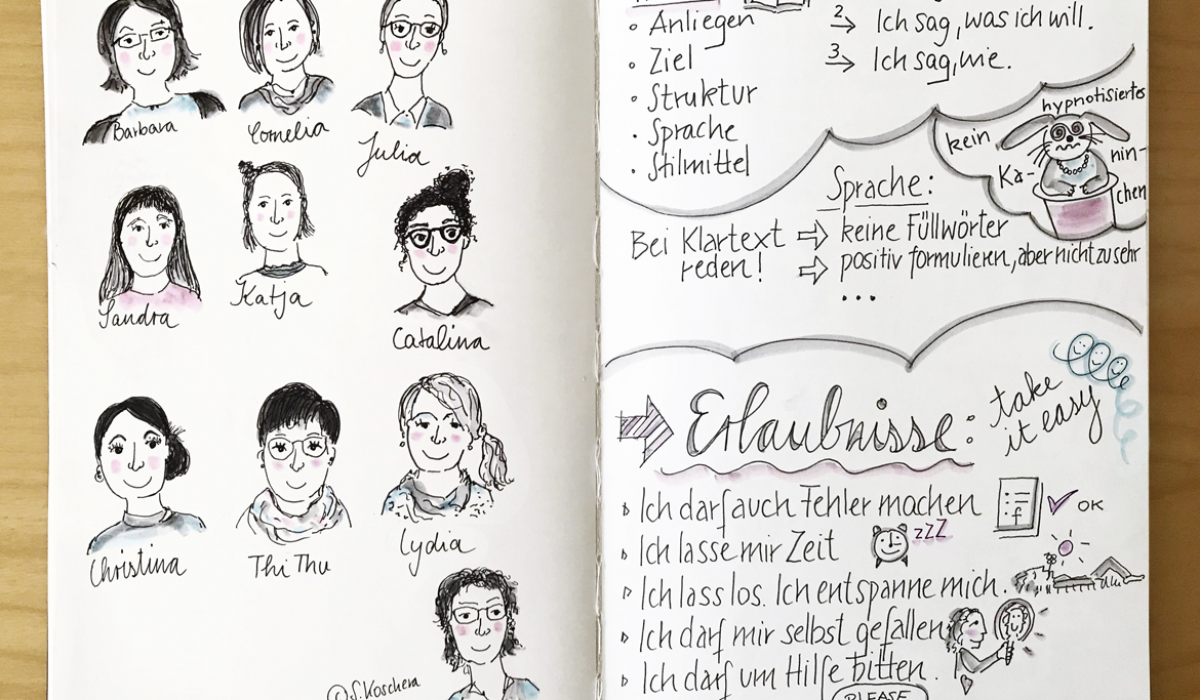 Barbara
Cornelia
Julia
Sandra
Katja
Catalina
Christina
Thi Thu
Lydia
© S. Koschera
• Anliegen
• Ziel
• Struktur
• Sprache
• Stilmittel
2 → Ich sag, was ich will.
3 → Ich sag, wie.
kein
hypnotisiertes
Ka-
nin-
chen
Sprache:
Bei Klartext ⇒ keine Füllwörter
reden! ⇒ positiv formulieren, aber nicht zu sehr
...
Erlaubnisse:
take
it easy
Ich darf auch Fehler machen
OK
Ich lasse mir Zeit
zzZ
Ich lass los. Ich entspanne mich.
Ich darf mir selbst gefallen
Ich darf um Hilfe bitten.
PLEASE